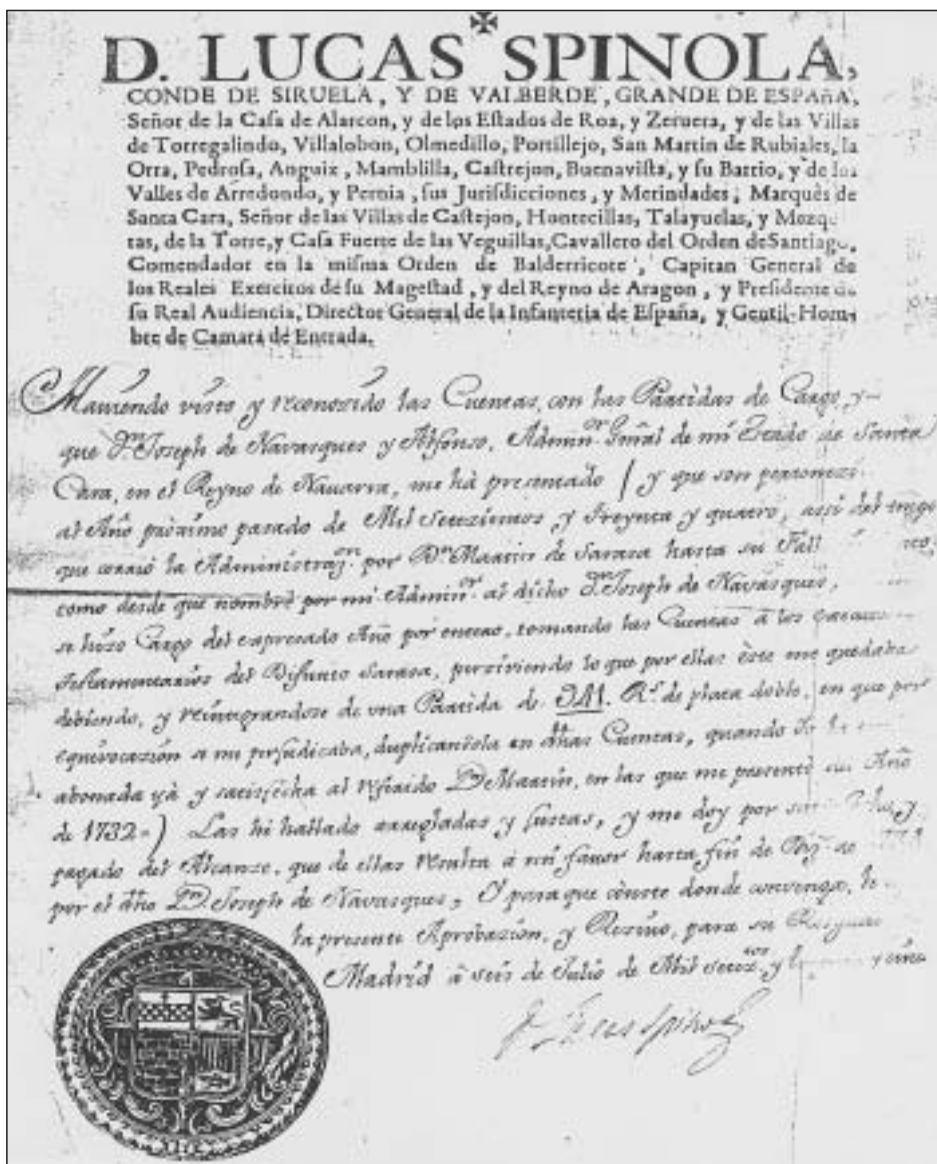 D. LUCAS SPINOLA,
CONDE DE SIRUELA, Y DE VALBERDE, GRANDE DE ESPAñA,
Señor de la Caſa de Alarcon, y de los Eſtados de Roa, y Zeruera, y de las Villas
de Torregalindo, Villalobon, Olmedillo, Portillejo, San Martin de Rubiales, la
Orra, Pedroſa, Anguix, Mamblilla, Caſtrejon, Buenaviſta, y ſu Barrio, y de los
Valles de Arredondo, y Pernia, ſus Juriſdicciones, y Merindades; Marquès de
Santa Cara, Señor de las Villas de Caſtejon, Hontecillas, Talayuelas, y Mozq
tas, de la Torre, y Caſa Fuerte de las Veguillas, Cavallero del Orden de Santiago,
Comendador en la miſma Orden de Balderricote, Capitan General de
los Reales Exercitos de ſu Mageſtad, y del Reyno de Aragon, y Preſidente de
ſu Real Audiencia, Director General de la Infanteria de Eſpaña, y Gentil-Hom-
bre de Camara de Entrada.
Haviendo visto y reconozido las Cuentas, con las Partidas de Cargo, y
que Dn. Joseph de Navasques y Alfonso, Adminor. Gñral de mi Estado de Santa
Cara, en el Reyno de Navarra, me hà presentado / y que son
al Año pròximo pasado de Mil Setezientos y Treynta y quatro, assi del tiempo
que corriò la Administrazn. por Dn. Martin de Sarasa hasta su
como desde que nombrè por mi Adminor. al dicho Dn. Joseph de Navasques,
se hizo Cargo del expresado Año por entero, tomando las Cuentas à los
testamentarios del Difunto Sarasa, perziviendo lo que por ellas èste me quedaba
debiendo, y reintegrandose de una Partida de 941. Rs. de plata doble, en que por
equivocazion a mi perjudicaba, duplicandola en dhas Cuentas, quando
abonada yà y satisfecha al referido Dn. Martin, en las que me presentò
Año
de 1732=) Las hè hallado arregladas y justas, y me doy por
y
pagado del Alcanze, que de ellas resulta à mi favor hasta fin de
por el dho Dn. Joseph de Navasques, Y para que cònste donde convenga,
la presente Aprobazion, y Rezivo, para su
Madrid à seis de Julio de Mil setezos. y
Lucas Spinola